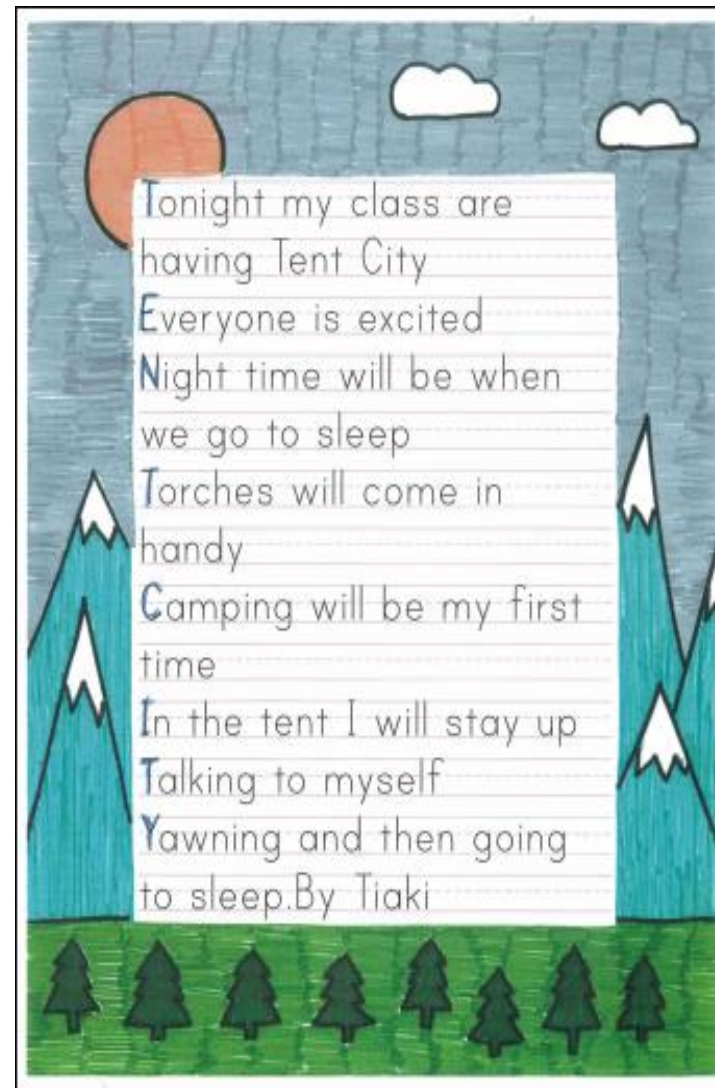 Tonight my class are
having Tent City
Everyone is excited
Night time will be when
we go to sleep
Torches will come in
handy
Camping will be my first
time
In the tent I will stay up
Talking to myself
Yawning and then going
to sleep.By Tiaki